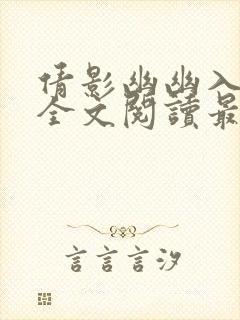 倩影幽幽入
全文閱讀最
言言言汐